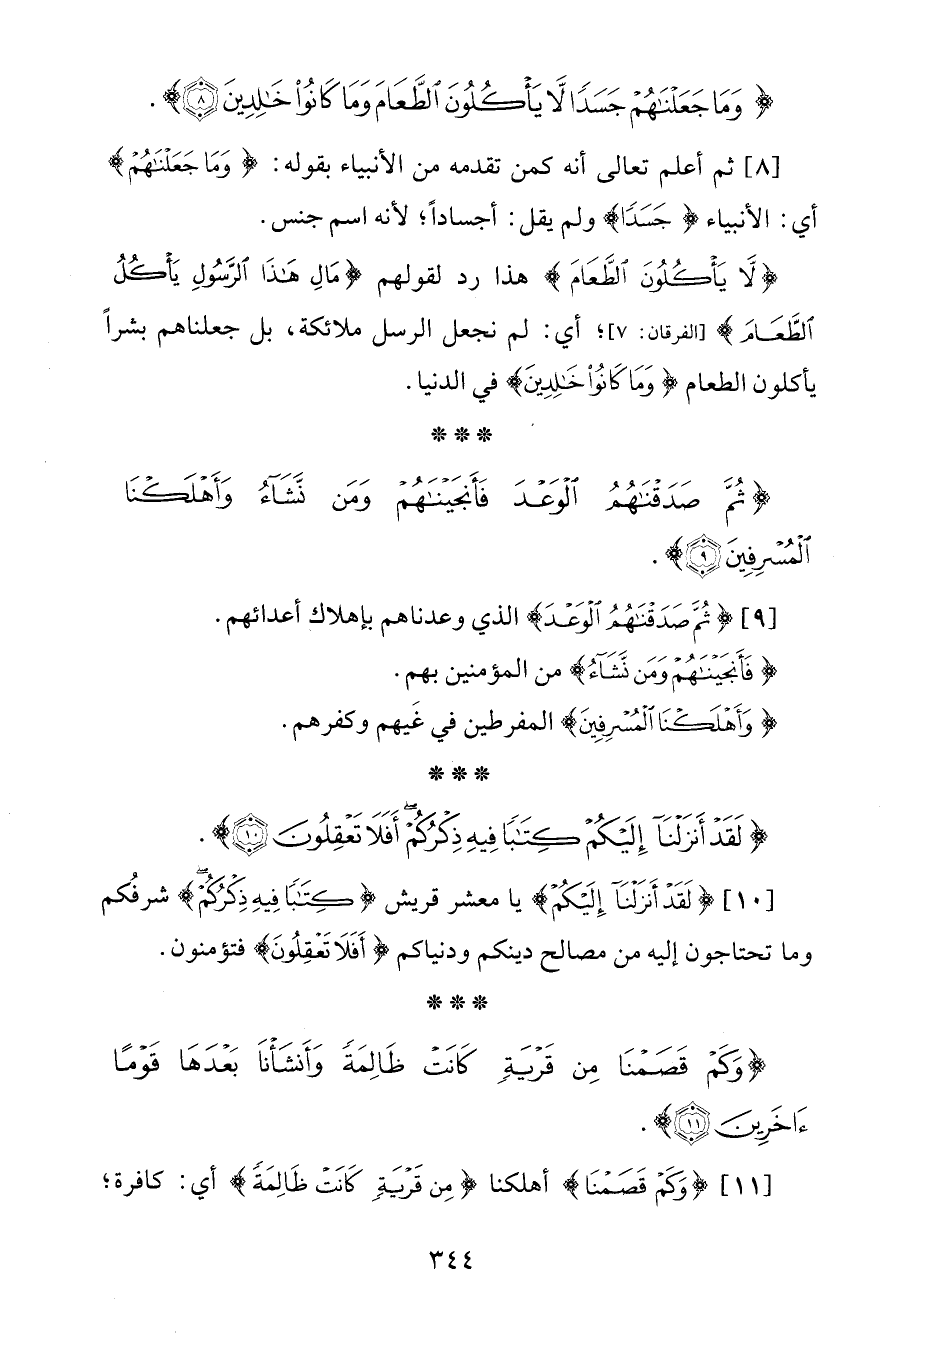 ﴿ وَمَا جَعَلْنَٰهُمْ جَسَدًا لَّا يَأْكُلُونَ ٱلطَّعَامَ وَمَا كَانُوا۟ خَٰلِدِينَ ۝٨﴾ .
[٨] ثم أعلم تعالى أنه كمن تقدمه من الأنبياء بقوله: ﴿ وَمَا جَعَلْنَٰهُمْ ﴾
أي: الأنبياء ﴿ جَسَدًا﴾ ولم يقل: أجساداً؛ لأنه اسم جنس.
﴿لَّا يَأْكُلُونَ ٱلطَّعَامَ ﴾ هذا رد لقولهم ﴿مَالِ هَٰذَا ٱلرَّسُولِ يَأْكُلُ
ٱلطَّعَامَ ﴾ [الفرقان: ٧]؛ أي: لم نجعل الرسل ملائكة، بل جعلناهم بشراً
يأكلون الطعام ﴿ وَمَا كَانُوا۟ خَٰلِدِينَ﴾ في الدنيا.
* * *
﴿ثُمَّ صَدَقْنَٰهُمُ ٱلْوَعْدَ فَأَنجَيْنَٰهُمْ وَمَن نَّشَآءُ وَأَهْلَكْنَا
ٱلْمُسْرِفِينَ ۝٩﴾ .
[٩] ﴿ ثُمَّ صَدَقْنَٰهُمُ ٱلْوَعْدَ﴾ الذي وعدناهم بإهلاك أعدائهم.
﴿ فَأَنجَيْنَٰهُمْ وَمَن نَّشَآءُ﴾ من المؤمنين بهم.
﴿ وَأَهْلَكْنَا ٱلْمُسْرِفِينَ﴾ المفرطين في غَيهم وكفرهم.
* * *
﴿ لَقَدْ أَنزَلْنَآ إِلَيْكُمْ كِتَٰبًا فِيهِ ذِكْرُكُمْ ۖ أَفَلَا تَعْقِلُونَ ۝١٠﴾ .
[١٠] ﴿ لَقَدْ أَنزَلْنَآ إِلَيْكُمْ﴾ يا معشر قريش ﴿ كِتَٰبًا فِيهِ ذِكْرُكُمْ ۖ﴾ شرفُكم
وما تحتاجون إليه من مصالح دينكم ودنياكم ﴿ أَفَلَا تَعْقِلُونَ﴾ فتؤمنون.
* * *
﴿وَكَمْ قَصَمْنَا مِن قَرْيَةٍ كَانَتْ ظَالِمَةً وَأَنشَأْنَا بَعْدَهَا قَوْمًا
ءَاخَرِينَ ۝١١﴾ .
[١١] ﴿وَكَمْ قَصَمْنَا﴾ أهلكنا ﴿ مِن قَرْيَةٍ كَانَتْ ظَالِمَةً ﴾ أي: كافرة؛
٣٤٤